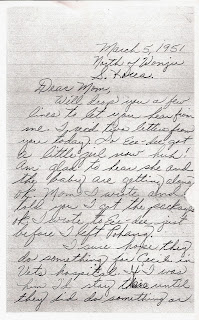 March 5, 1951
North of Wonju
S. Korea
Dear Mom,
Will drop you a few
lines to let you hear from
me. I rec'd two letters from
you today. So Eva-Dee got
a little girl now huh!
Am glad to hear she and
the baby are getting along
ok. Mom I wrote and
told you I got the package
ok. I wrote to Eva-dee just
before I left Pohang.
I sure hope they
do something for Cecil in
Vets hospital. If I was
him I'd stay there until
they did do something or